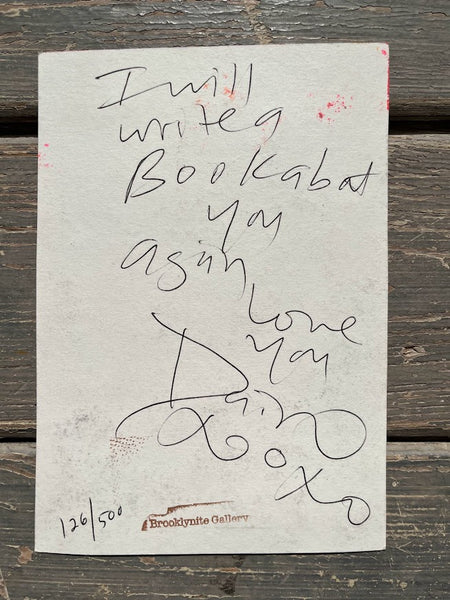 I will
write a
Book abot
you
agin
love
you
Dain
xoxo
126/500
Brooklynite Gallery